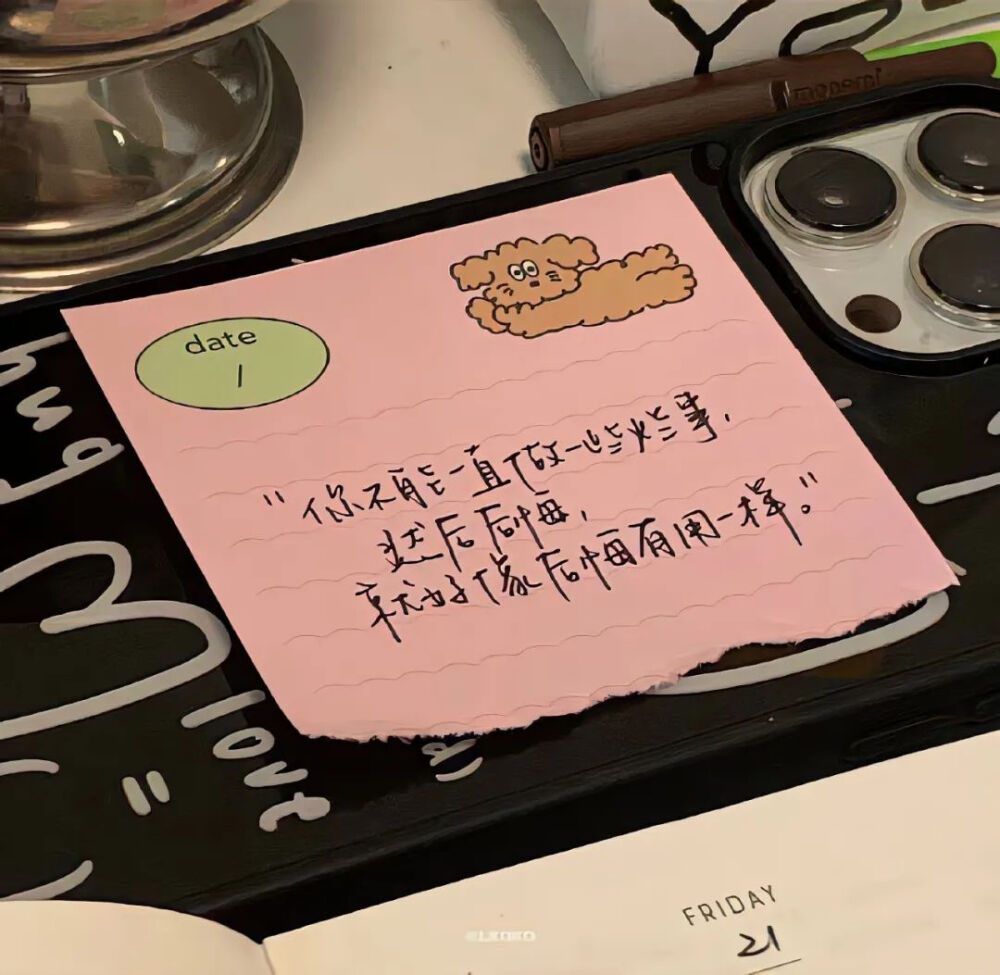 monami
date
/
“你不能一直做一些烂事,
然后后悔,
就好像后悔有用一样。”
hug
love
=
FRIDAY
21